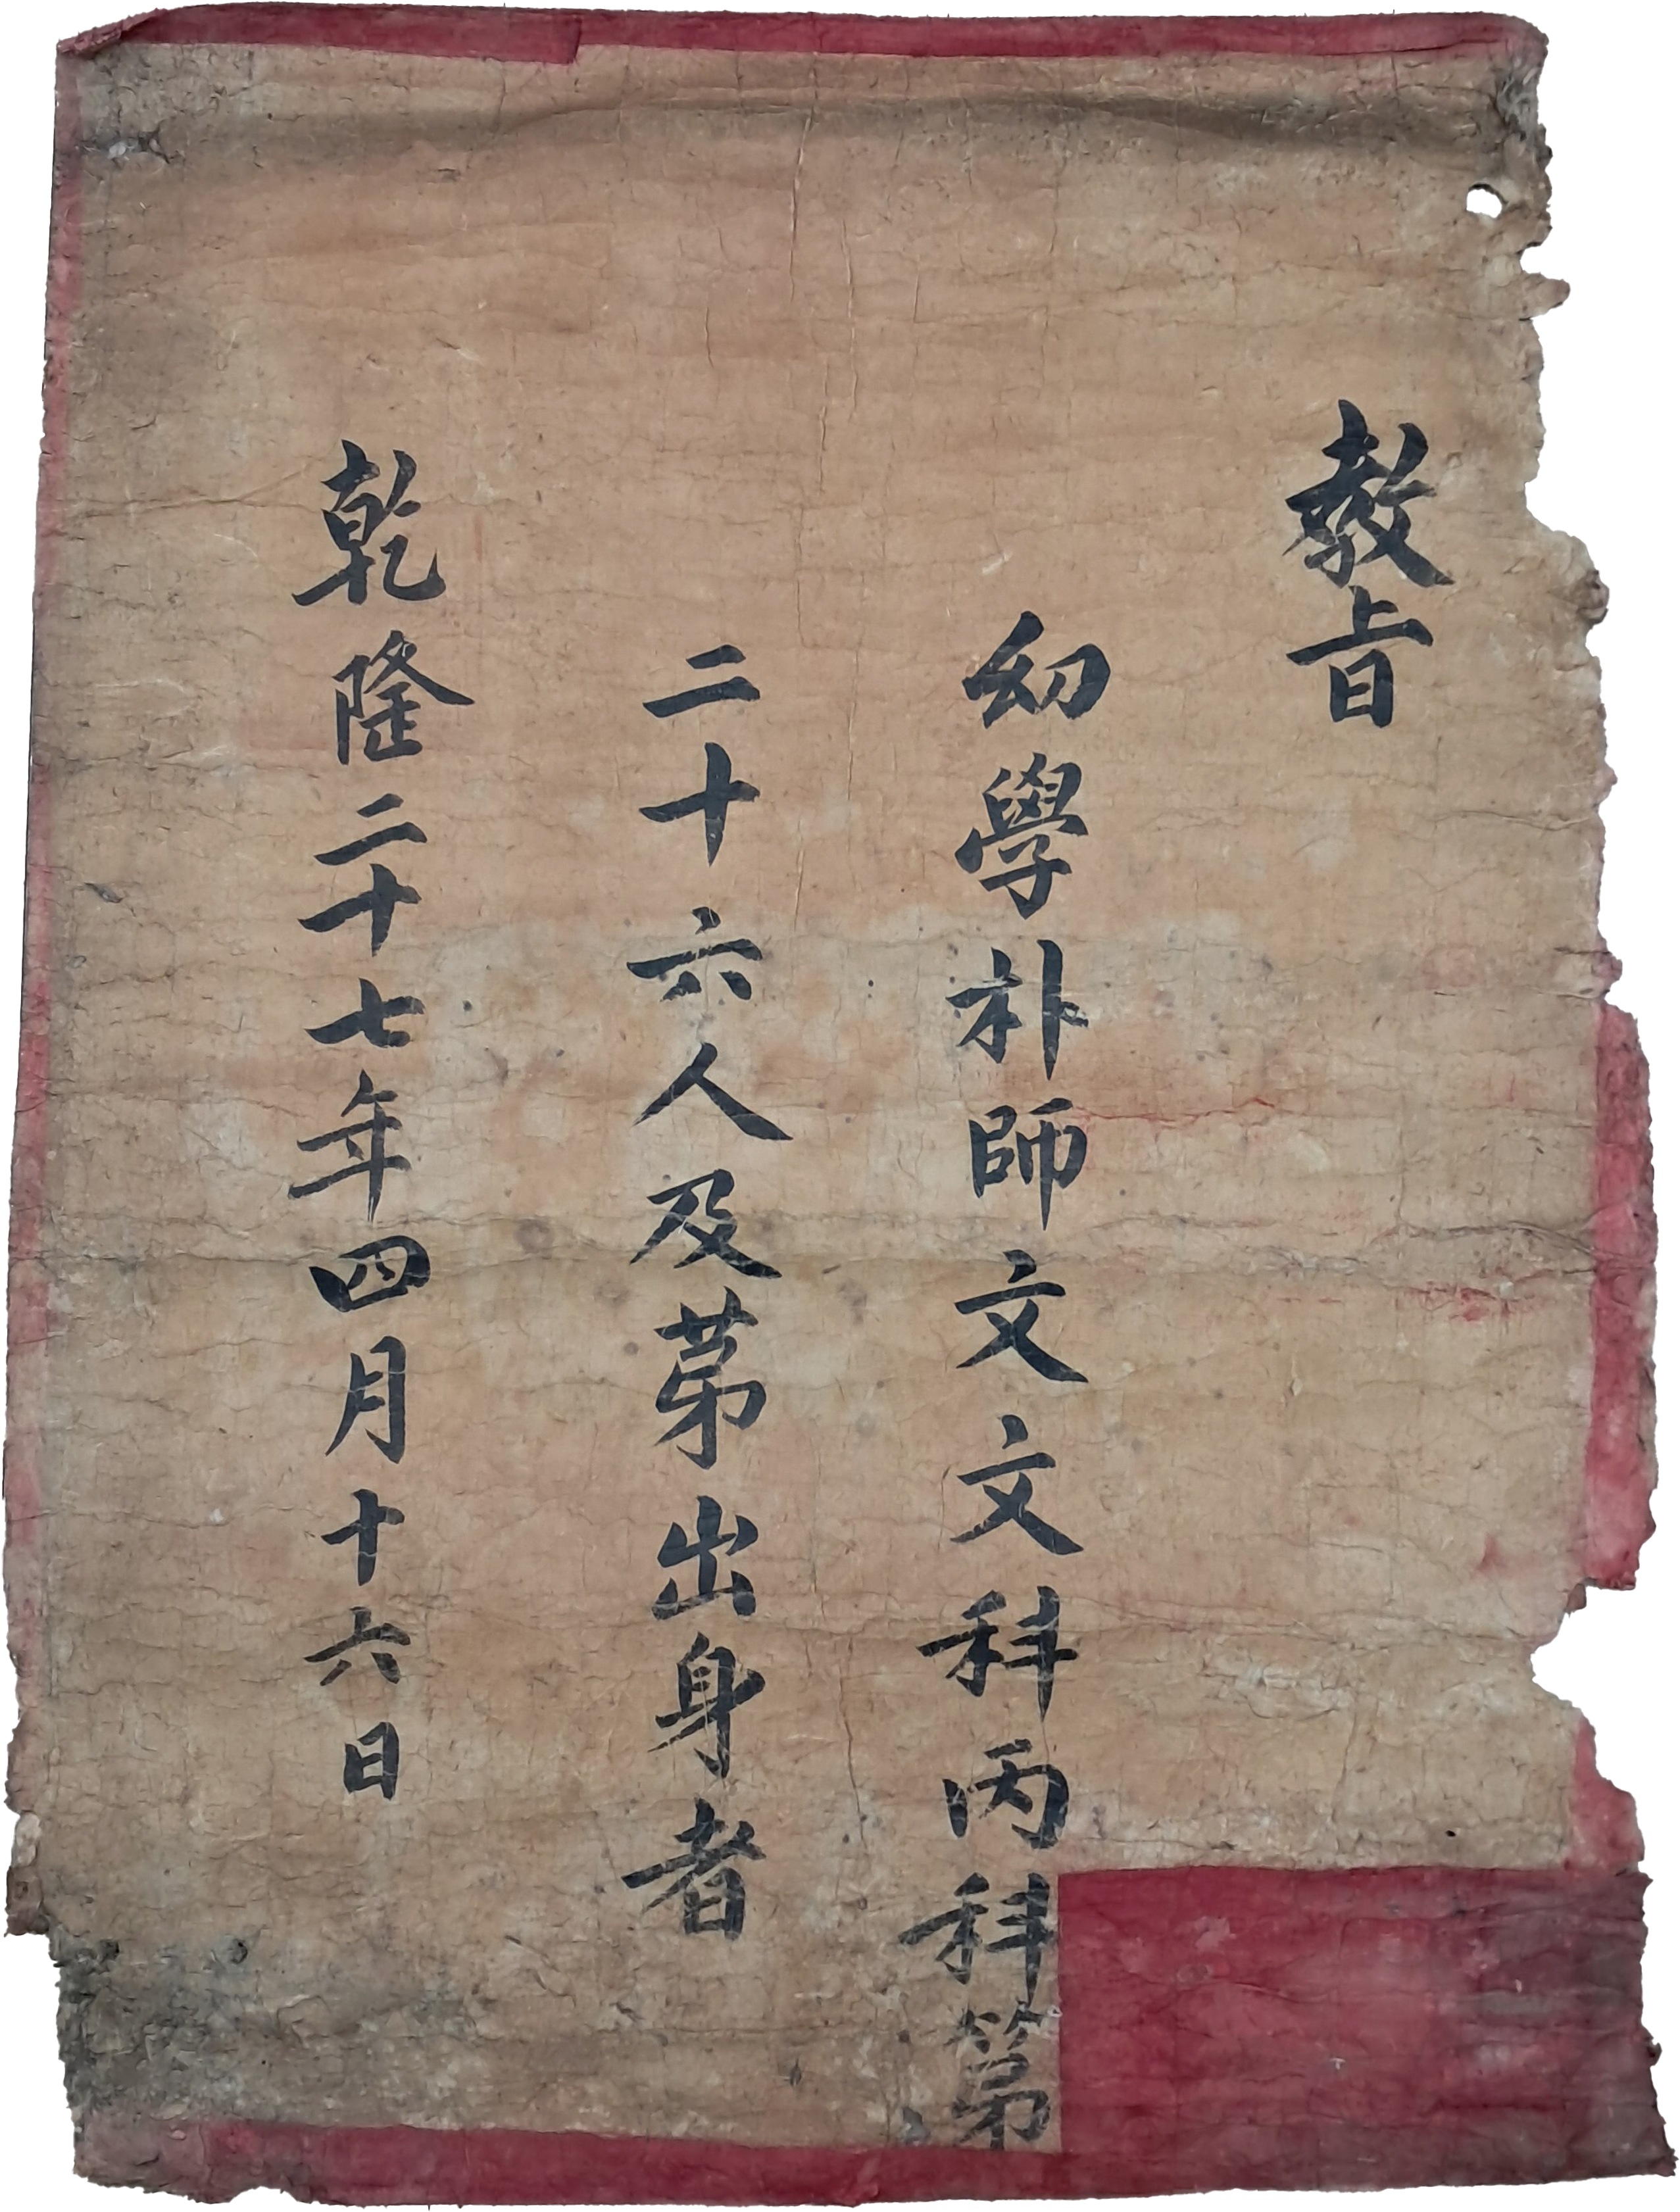 教旨
幼學朴師文文科丙科第
二十六人及苐出身者
乾隆二十七年四月十六日